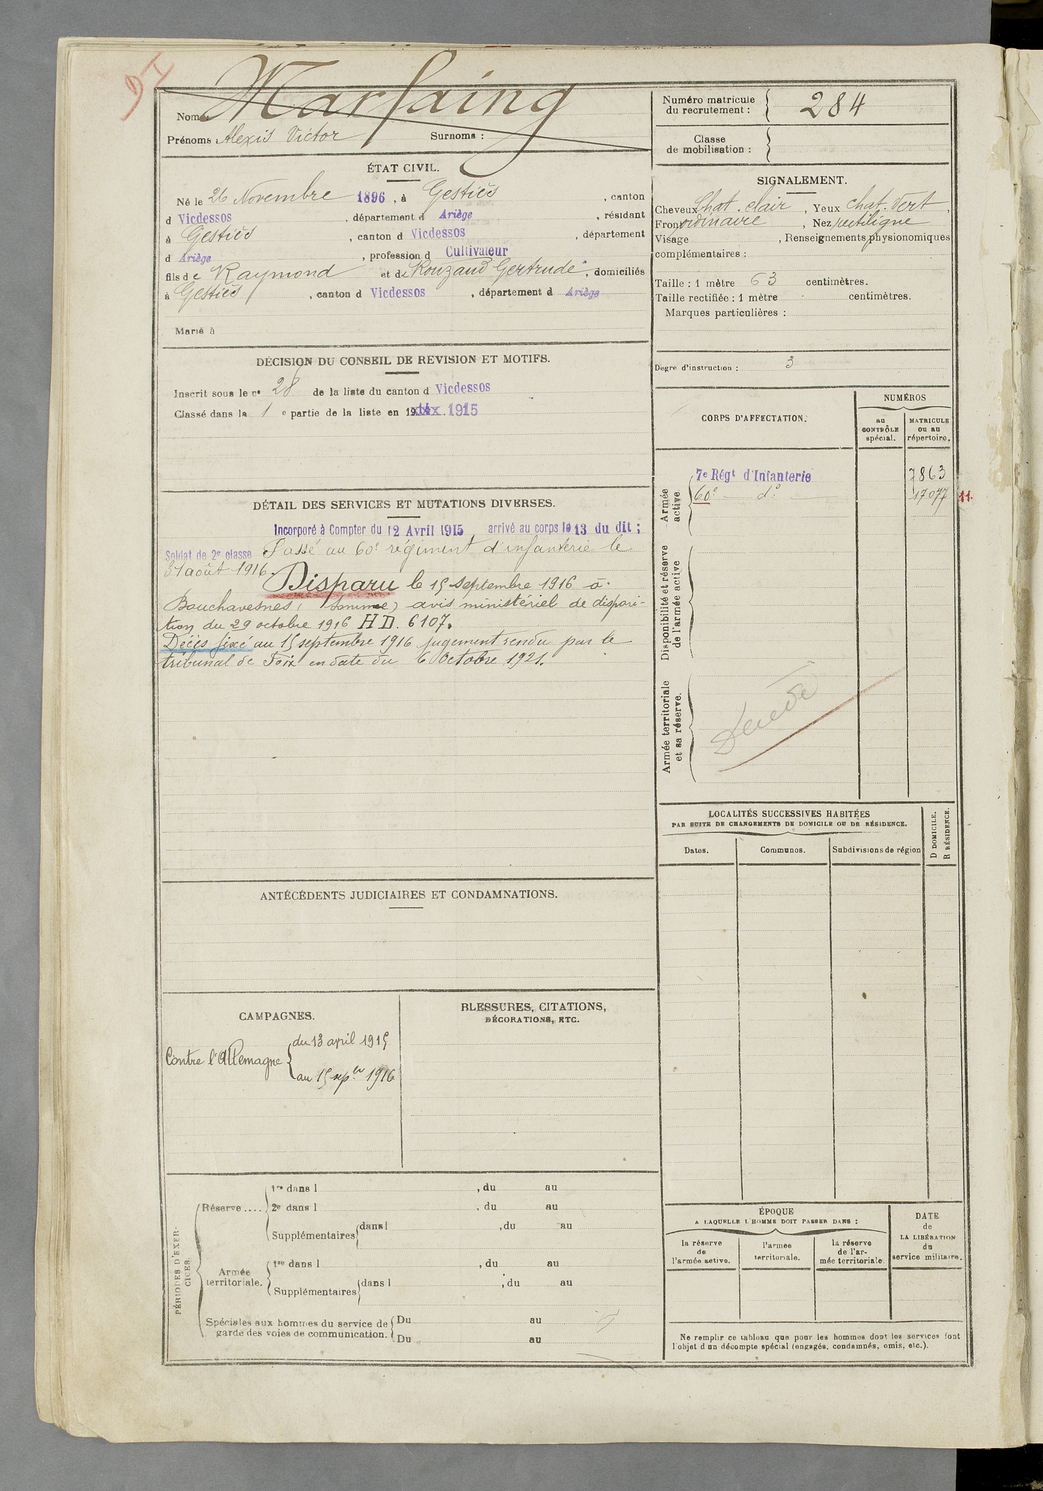 97
Nom: Marfaing
Prénoms: Alexis Victor Surnoms :
Numéro matricule du recrutement : 284
Classe de mobilisation :
ÉTAT CIVIL.
Né le 26 Novembre 1896, à Gestiès, canton
d Vicdessos, département d Ariège, résidant
à Gestiès, canton d Vicdessos, département
d Ariège, profession d Cultivateur
fils de Raymond et de Rouzaud Gertrude, domiciliés
à Gestiès, canton d Vicdessos, département d Ariège
Marié à
SIGNALEMENT.
Cheveux Chat. clair, Yeux chat. vert,
Front ordinaire, Nez rectiligne
Visage , Renseignements physionomiques
complémentaires :
Taille : 1 mètre 63 centimètres.
Taille rectifiée : 1 mètre centimètres.
Marques particulières :
Degré d'instruction : 3
DÉCISION DU CONSEIL DE REVISION ET MOTIFS.
Inscrit sous le n° 28 de la liste du canton d Vicdessos
Classé dans la 1 e partie de la liste en 19 1915
DÉTAIL DES SERVICES ET MUTATIONS DIVERSES.
Incorporé à Compter du 12 Avril 1915 arrivé au corps le 13 du dit ;
Soldat de 2e classe Passé au 60e régiment d'infanterie le
31 août 1916.
Disparu le 15 septembre 1916 à
Bouchavesnes (Somme) avis ministériel de dispari-
tion du 29 octobre 1916 HD. 6107.
Décès fixé au 15 septembre 1916 jugement rendu par le
tribunal de Foix en date du 6 Octobre 1921.
CORPS D'AFFECTATION.
NUMÉROS
au CONTRÔLE spécial.
MATRICULE OU AU répertoire.
Armée active.
7e Régt d'Infanterie 7863
60e d° 17077 11.
Disponibilité et réserve de l'armée active.
Armée territoriale et sa réserve.
Décédé
LOCALITÉS SUCCESSIVES HABITÉES
PAR SUITE DE CHANGEMENTS DE DOMICILE OU DE RÉSIDENCE.
Dates. Communes. Subdivisions de région
D DOMICILE. R RÉSIDENCE.
ANTÉCÉDENTS JUDICIAIRES ET CONDAMNATIONS.
CAMPAGNES.
Contre l'Allemagne
du 13 avril 1915
au 15 sepbre 1916
BLESSURES, CITATIONS,
DÉCORATIONS, ETC.
PÉRIODES D'EXERCICES.
Réserve ....
1re dans l , du au
2e dans l , du au
Supplémentaires dans l , du au
Armée territoriale.
1re dans l , du au
Supplémentaires dans l , du au
Spéciales aux hommes du service de garde des voies de communication.
Du au
Du au
ÉPOQUE
A LAQUELLE L'HOMME DOIT PASSER DANS :
la réserve de l'armée active.
l'armée territoriale.
la réserve de l'armée territoriale.
DATE de LA LIBÉRATION du service militaire.
Ne remplir ce tableau que pour les hommes dont les services font
l'objet d'un décompte spécial (engagés, condamnés, omis, etc.).